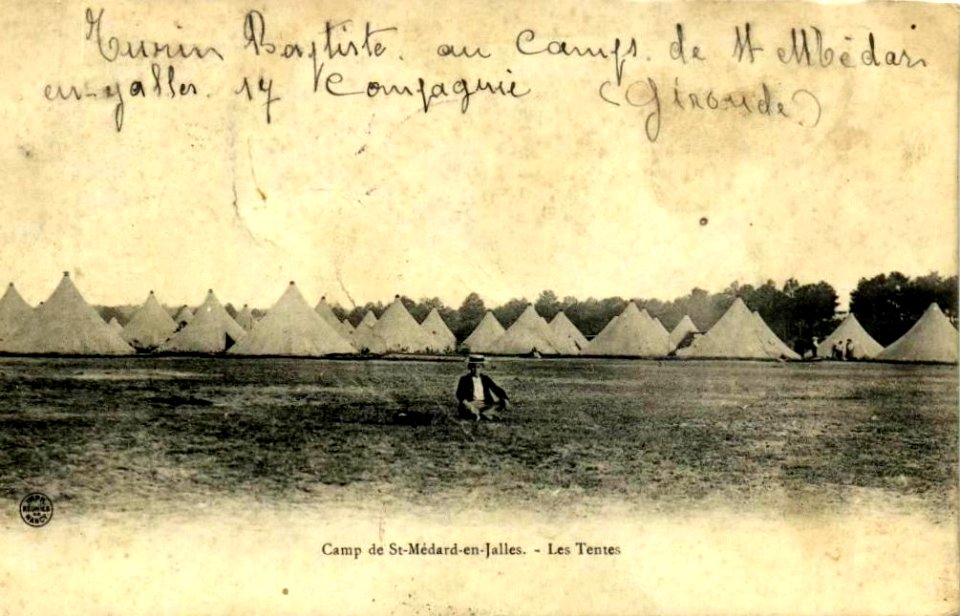 Turin Baptiste. au Camps. de St Médard
en-yalles. 17 Compagnie (Gironde)
IMPR
RÉUNIES
DE
NANCY
Camp de St-Médard-en-Jalles. - Les Tentes